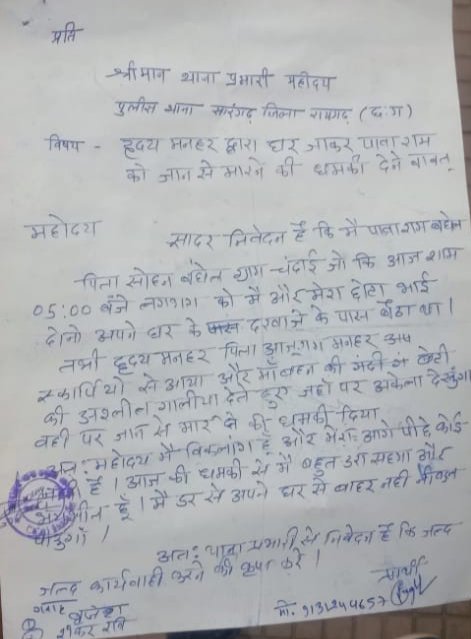 प्रति
श्रीमान थाना प्रभारी महोदय
पुलीस थाना सारंगढ़ जिला रायगढ़ (छ.ग)
विषय - हृदय मनहर द्वारा घर जाकर पावा राम
को जान से मारने की धमकी देने बावत्
महोदय
सादर निवेदन है कि मै पावाराम बंघेल
पिता सोहन बंघेल ग्राम-चंदाई जो कि आज शाम
05:00 बजे लगभग को मै और मेरा छोटा भाई
दोनो अपने घर के दरवाजे के पास बैठा था।
तभी हृदय मनहर पिता मनहर अपने
स्कार्पियो से आया और माँ बहन की गंदी
की अश्लील गालीया देते हुए जहाँ पर अकेला देखुंगा
वही पर जान से मार की धमकी दिया
अतः महोदय मै विकलांग हुँ और मेरा आगे पीछे कोई
है। आज की धमकी से मै बहुत डरा सहमा और
हूँ। मै डर से अपने घर से बाहर नही निकल
पाउगाँ।
अतः थाना प्रभारी से निवेदन है कि जल्द
जल्द कार्यवाही करने की कृपा करे।
प्रार्थी
गवाह
मो. 9131244657